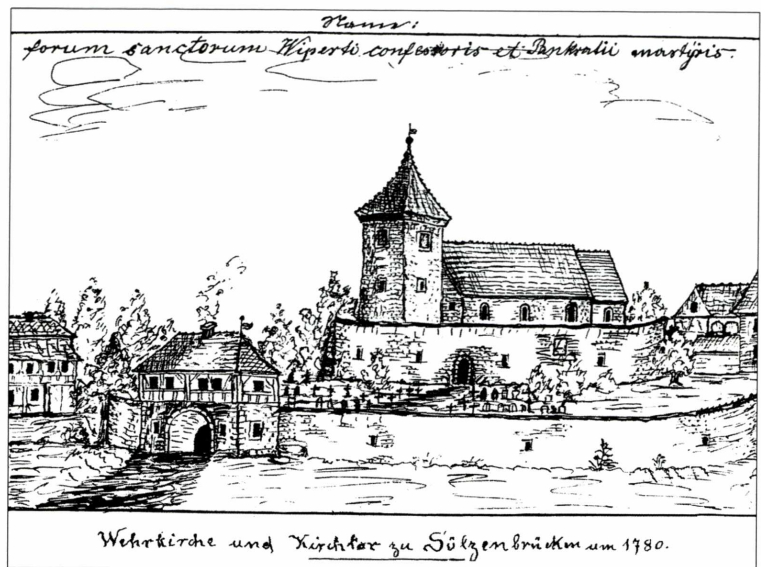 Name:
forum sanctorum Wiperti confessoris et Pankratii martÿris.
Wehrkirche und Kirchtor zu Sülzenbrücken um 1780.